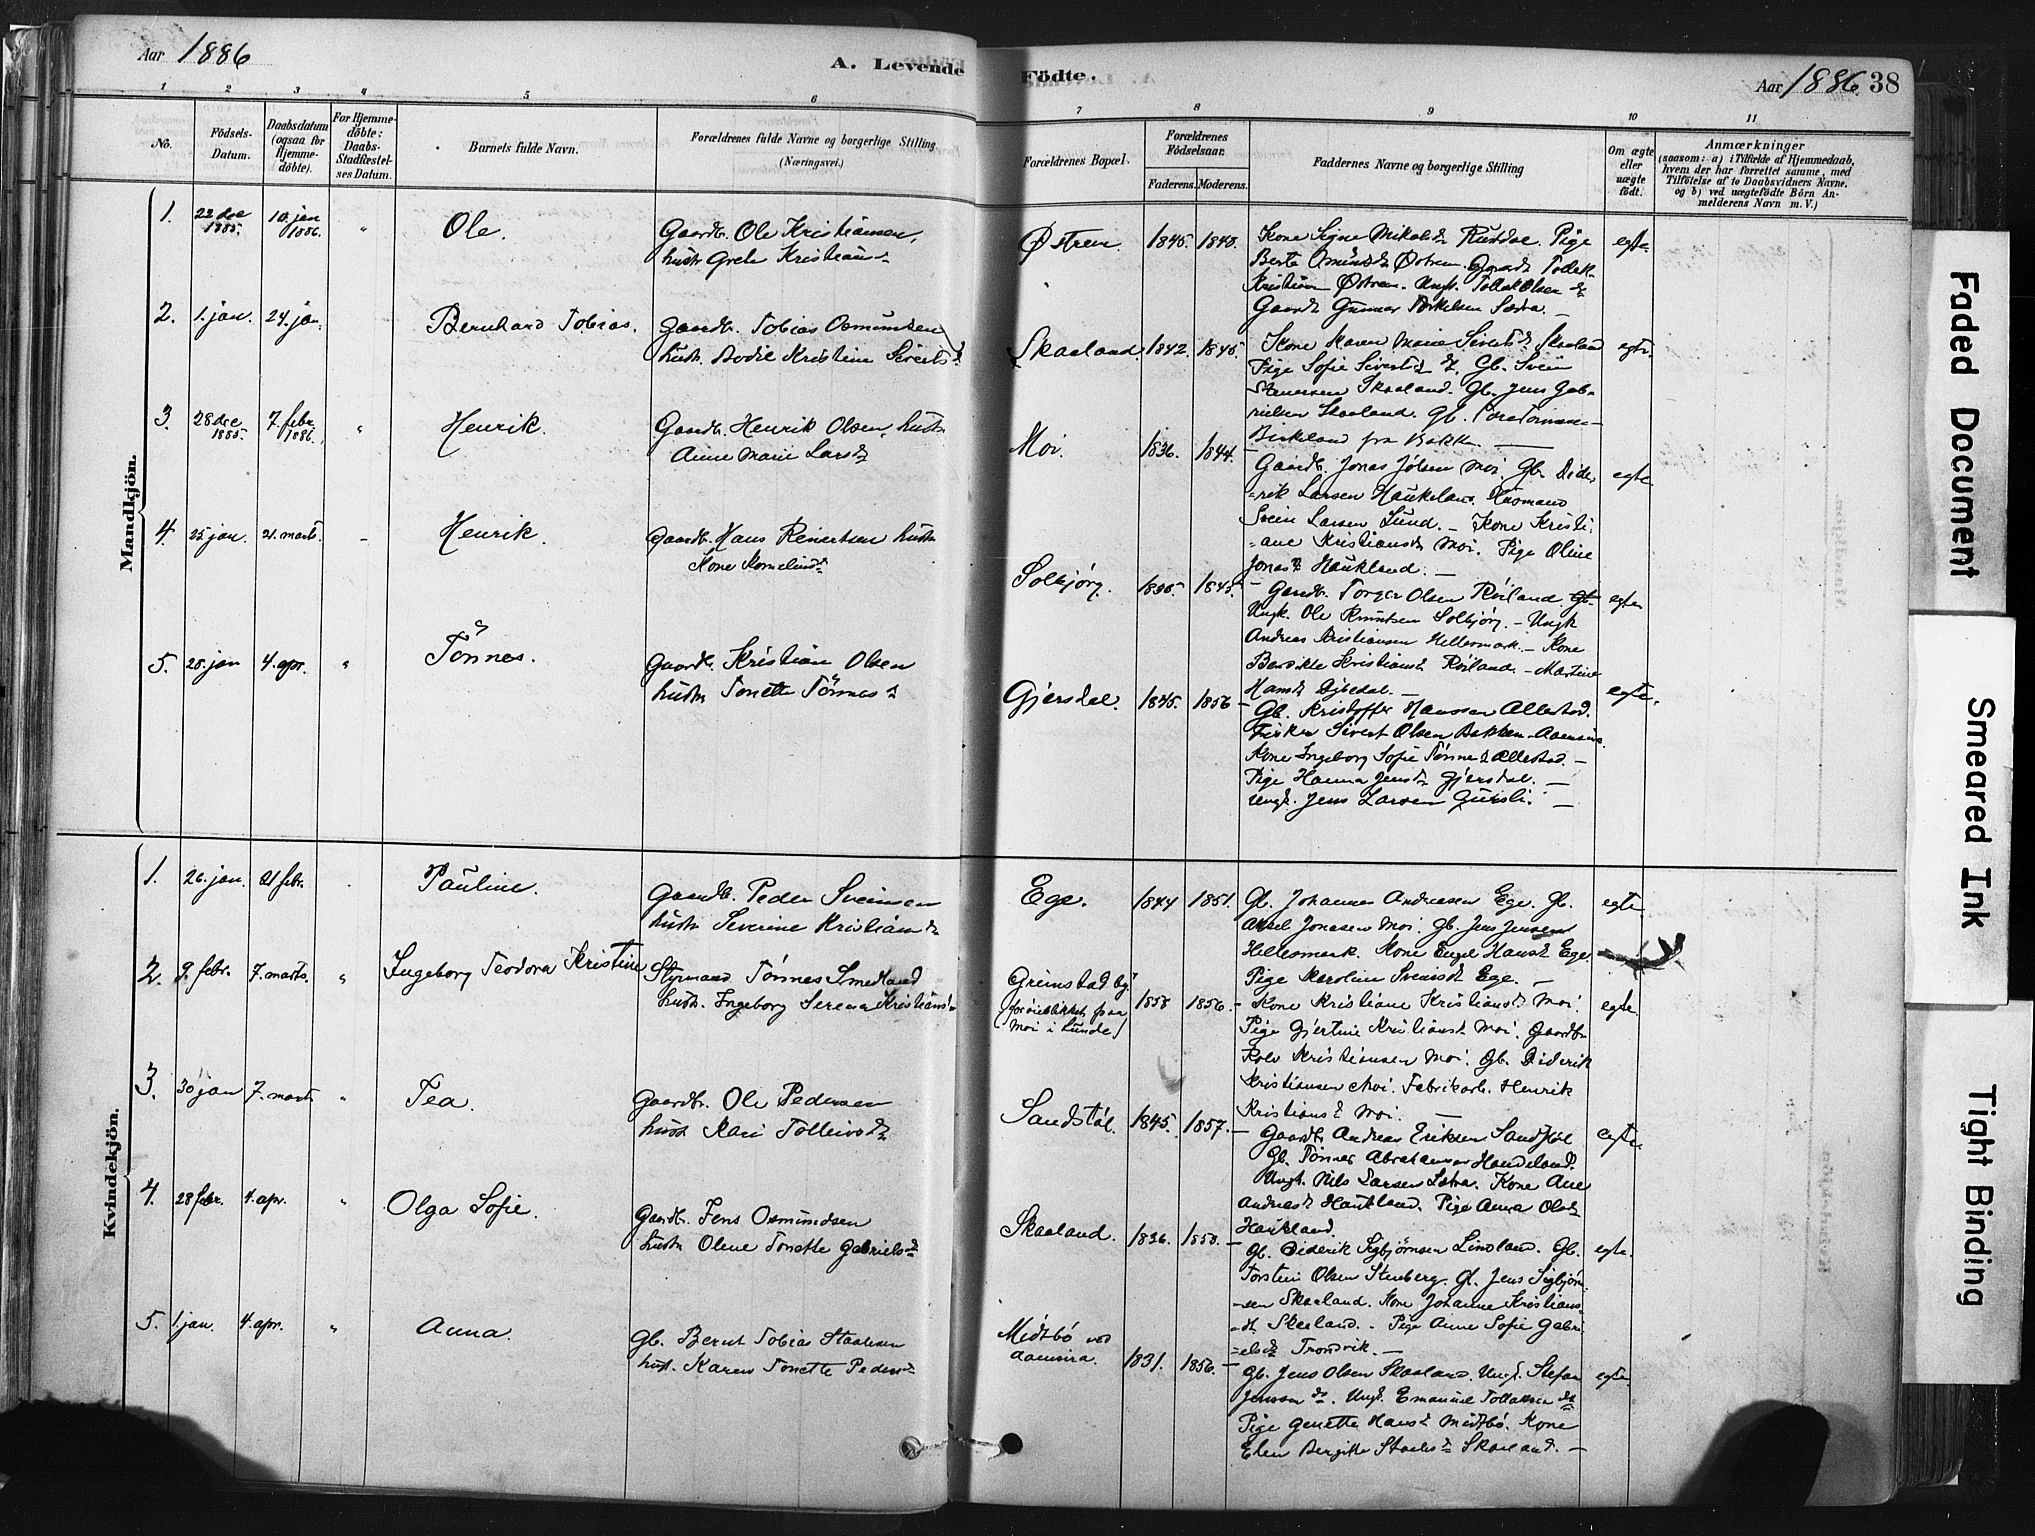 Aar 1886
A. Levende
Födte.
Aar 1886. 38
1 2 3 4 5 6 7 8 9 10 11
No.
Födsels-
Datum.
Daabsdatum
(ogsaa for
Hjemme-
döbte).
For Hjemme-
döbte:
Daabs-
Stadfæstel-
ses Datum.
Barnets fulde Navn.
Forældrenes fulde Navne og borgerlige Stilling
(Næringsvei.)
Forældrenes Bopæl.
Forældrenes
Födselsaar.
Faderens. Moderens.
Faddernes Navne og borgerlige Stilling
Om ægte
eller
uægte
födt.
Anmærkninger
(saasom: a) i Tilfælde af Hjemmedaab,
hvem der har forrettet samme, med
Tilföielse af to Daabsvidners Navne,
og b) ved uægtefödte Börn An-
melderens Navn m. V.)
Mandkjön.
1. 22 dec 1885. 10. jan 1886. " Ole.
Gaardb. Ole Kristiansen,
hustr Grete Kristians d.
Østrem 1845. 1840. egte.
Kone Signe Mikals d. Rusdal. Pige
Berte Omunds d. Østrem. Gaardb Tollak
Kristians Østrem. Ungk. Tollak Olsen do.
Gaardb Gunnar Sædra. —
2. 1. jan. 24. jan. Bernhard Tobias.
Gaardb. Tobias Osmundsen
hustr. Bodil Kristine Siverts d.
Skaaland 1842. 1845. egte.
Kone Karen Marie Siverts d. Skaaland
Pige Sofie Siverts d. do. Gb. Svein
Skaaland. Gb. Jens Gab-
rielsen Skaaland. Gb.
Birkeland fra Bakke. —
3. 28 dec 1885. 7. febr. 1886. " Henrik.
Gaardb. Henrik Olsen, hustr
Anne Marie Lars d.
Moi. 1836. 1844. egte.
Gaardb. Jonas Jolsen Moi. Gb. Dide-
rik Larsen Haukeland. Husmand
Svein Larsen Lund. — Kone Kristi-
ane Kristians d. Moi. Pige Oline
Jonas d. Haukland. —
4. 25 jan. 21. marts. Henrik.
Gaardb. Hans Reinertsen hustr
Tone Kornelius d.
Solbjørg. 1845. egte
Gaardb. Torger Olsen Røiland
Ungk. Ole Knutsen Solbjørg. — Ungk
Andreas Kristiansen Hellesmark. — Kone
Kristians d. Røiland. — Martine
Hans d. —
5. 25. jan 4. apr. " Tönnes.
Gaardb. Kristian Olsen
hustr Tonette Tönnes d.
Gjersdal. 1845. 1856 egte.
Gb. Kristoffer Hanssen Allestad.
Fisker Sivert Olsen Bakken Aaensire.
Kone Ingeborg Sofie Tönnes d. Allestad. —
Pige Hanna Jens d. Gjersdal. —
ungk. Jens Larsen Gursli. —
Kvindekjön.
1. 26. jan. 21 febr. Pauline.
Gaardb. Peder Sveinsen
hustr Severine Kristians d.
Ege. 1844 1851. egte.
Gb. Johannes Andreasen Ege. Gb.
Aksel Jonasen Moi. Gb. Jens Jensen
Hellesmark. Kone Engel Hans d. Ege
Pige Karoline Sveins d. Ege. —
2. 9. febr. 7. marts. " Ingeborg Teodora Kristine
Styrmand Tönnes Smedland
hustr. Ingeborg Serena Kristians d.
Grimstad by.
(for öieblikket paa
Moi i Lunde) 1858 1856. egte
Kone Kristiane Kristians d. Moi.
Pige Gjertine Kristians d. Moi. Gaardb
Rolv Kristiansen Moi. Gb. Diderik
Kristiansen Moi. Fabrikarb. Henrik
Kristians d. Moi. —
3. 30 jan 7. marts " Tea.
Gaardb. Ole Pedersen
hustr Kari Tollivs d.
Sandstøl. 1845. 1857. egte.
Gaardb Andreas Eriksen Sandstøl
Gb. Tönnes Abrahamsen Handeland.
Ungk. Nils Larsen Kone Ane
Andreas d. Haukland. Pige Anna Ols d.
Haukland.
4. 28 febr. 4. apr. " Olga Sofie.
Gaardb. Jens Osmundsen
hustr Olene Tonette Gabriels d.
Skaaland. 1836. 1850. egte.
Gb. Diderik Sigbjørnsen Lindland. Gb.
Torstein Olsen Stenberg. Gb. Jens Sigbjørn-
sen Skaaland. Kone Johanne Kristians-
d. Skaaland. Pige Anne Sofie Gabri-
els d. Trondvik. —
5. 1. jan. 4. apr. " Anna.
Gb. Bernt Tobias Staalesen
hust. Karen Tonette Peders d.
Midtbö ved
Aaensira. 1831. 1856. egte.
Gb. Jens Olsen Skaaland. Ungk. Stefan
Jensen do. Ungk. Emanuel Tollaksen do.
Pige Genette Hans d. Midtbö. Kone
Elen Bergitte Skaaland. —
Faded Document
Smeared Ink
Tight Binding